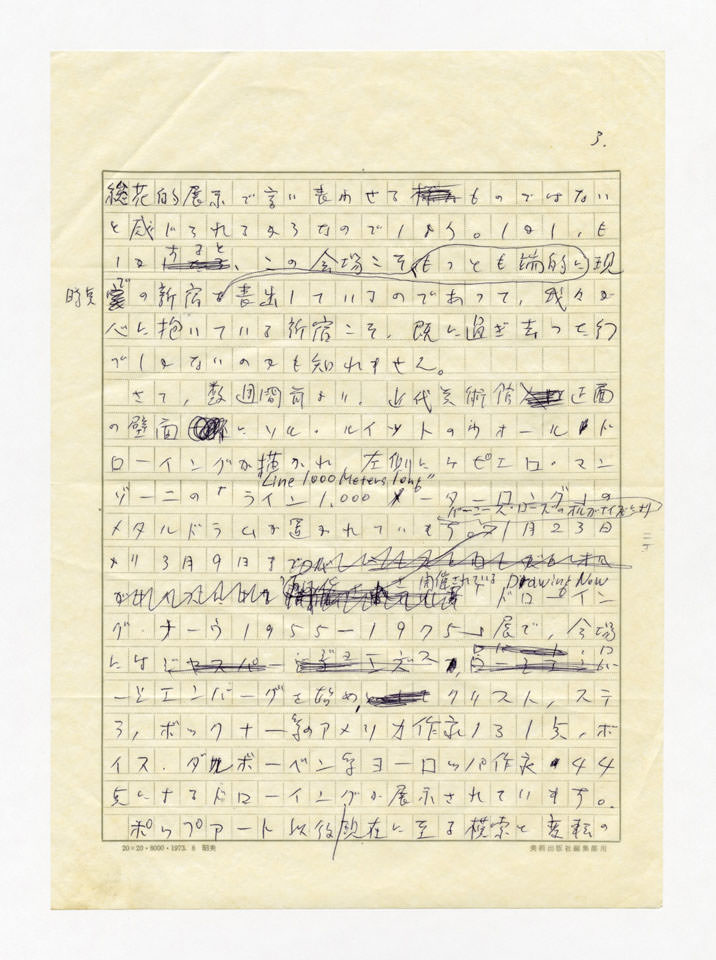 3.
総花的展示で言い表わせるものではない
と感じられてならなのでしょう。しかし、も
しかすると、この会場こそもっとも端的に現
時点での新宿を表出しているのであって、我々が
心に抱いている新宿こそ、既に過ぎ去った幻
でしかないのかも知れません。
さて、数週間前より、近代美術館正面
の壁面にソル・ルイットのウォール・ド
ローイングが描かれ、左側にはピエロ・マン
"Line 1000 Meters long"
ゾーニの「ライン1,000メーターロング」の
メタルドラムが置かれています。1月23日
より3月9日まで
開催されている Drawing Now
ドローイン
グ・ナウ1955—1975」展で、会場
には
エンバーグを始め、クリスト、ステ
ラ、ボックナー等のアメリカ作家131点、ボ
イス、ダルボーベン等ヨーロッパ作家44
点によるドローイングが展示されています。
ポップアート以後現在に至る模索と変転の
20×20・8000・1973.8 昭央
美術出版社編集部用